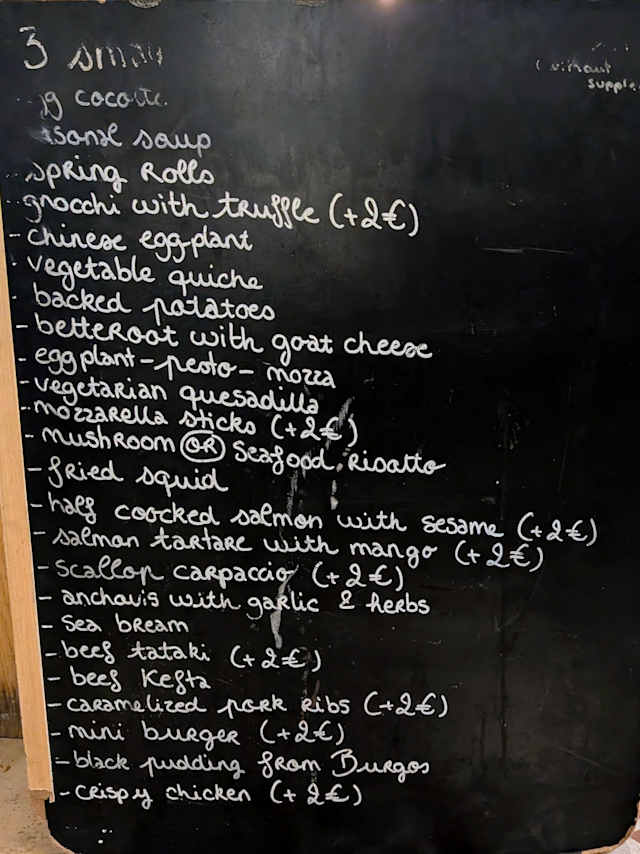 3 small
(without
supple
gg cocotte
sonal soup
spring rolls
gnocchi with truffle (+2€)
- chinese eggplant
- vegetable quiche
- backed potatoes
- betteroot with goat cheese
- eggplant-pesto-mozza
- vegetarian quesadilla
- mozzarella sticks (+2€)
- mushroom OR seafood risotto
- fried squid
- half coocked salmon with sesame (+2€)
- salmon tartare with mango (+2€)
- scallop carpaccio (+2€)
- anchovis with garlic & herbs
- sea bream
- beef tataki (+2€)
- beef Kefta
- caramelized pork ribs (+2€)
- mini burger (+2€)
- black pudding from Burgos
- crispy chicken (+2€)